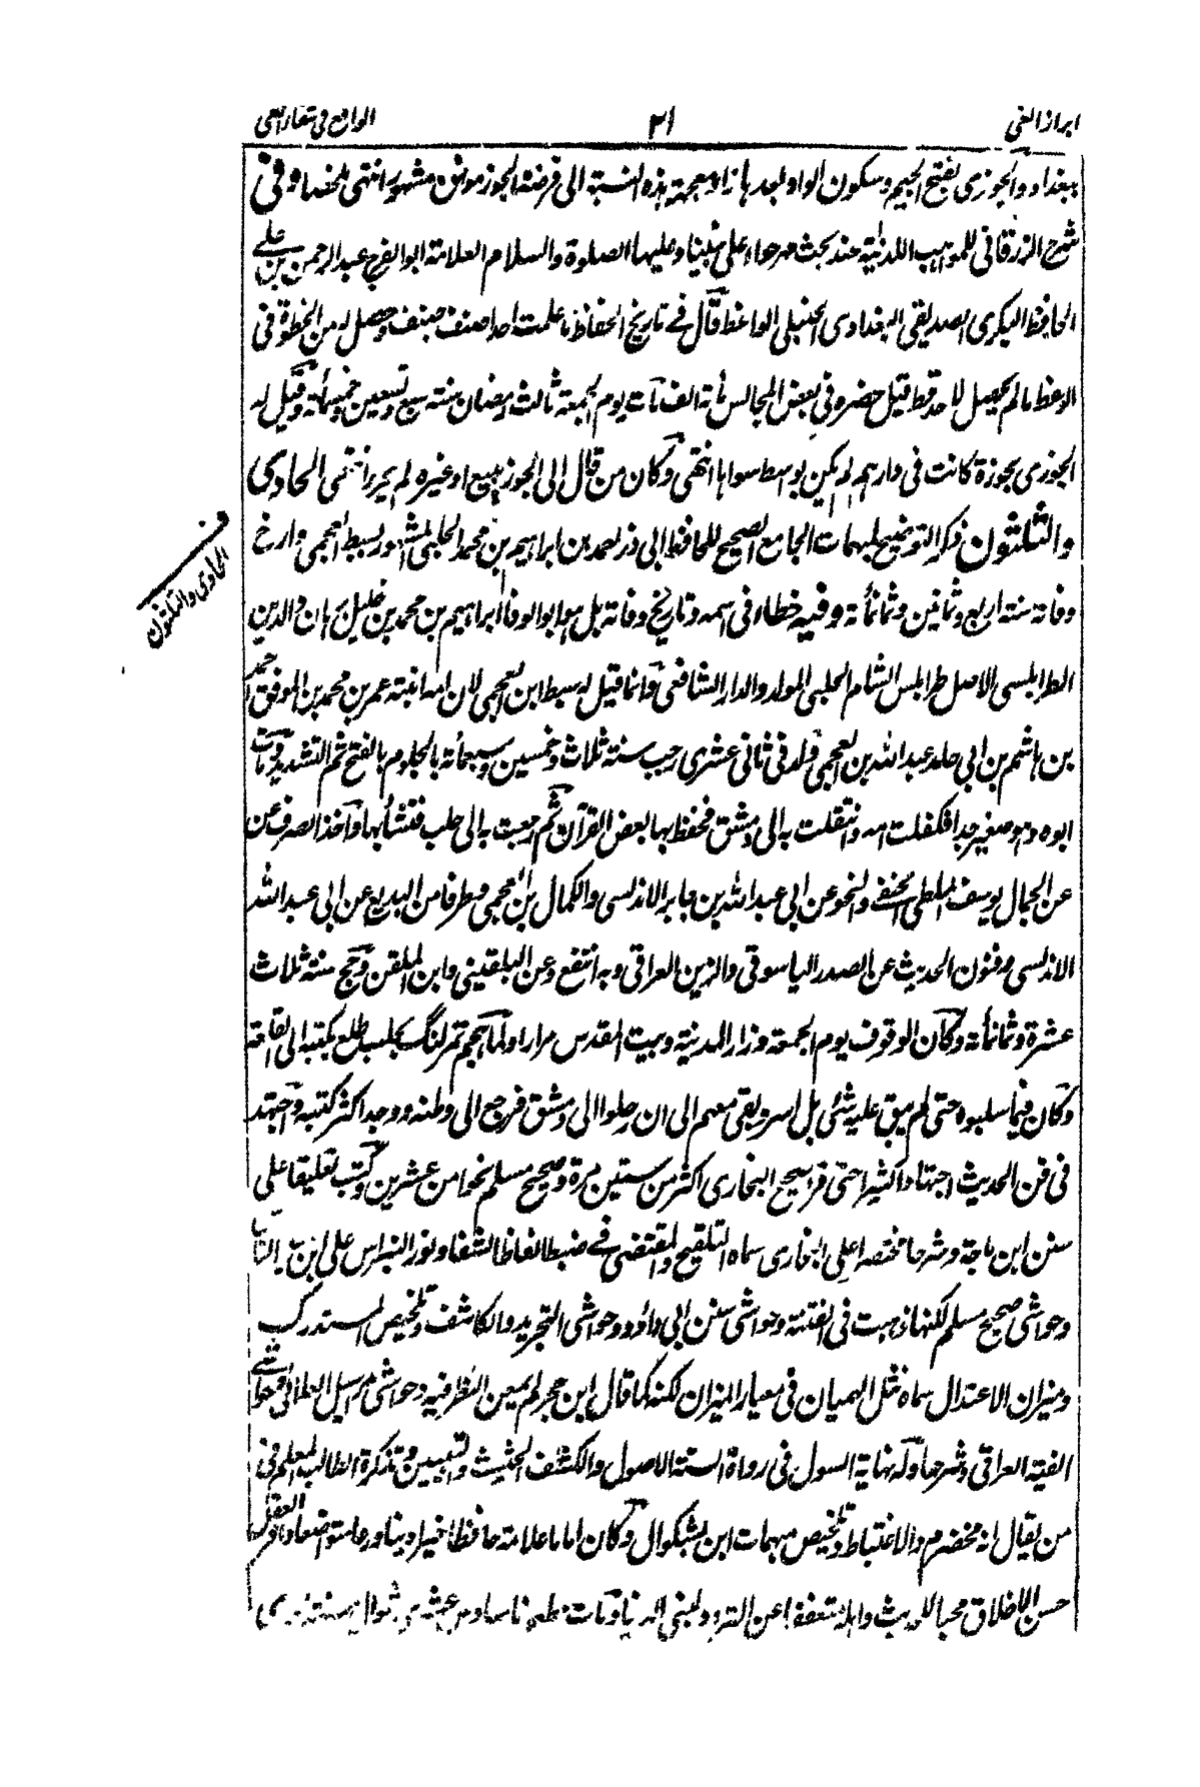 ابراز الغي ٢١ الواقع في شفاء العي
ببغداد والجوزى بفتح الجيم وسكون الواو بعدها زاء معجمة هذه النسبة الى فرضة الجوز موضع مشهور انتهى ملخصا وفى
شرح الزرقانى للمواهب اللدنية عند بحث مرحواء على نبينا وعليها الصلوة والسلام العلامة ابو الفرج عبد الرحمن بن على
الحافظ البكرى الصديقى البغدادى الحنبلى الواعظ قال فى تاريخ الحفاظ ما علمت احدا صنف ما صنف وحصل له من الحظوة فى
الوعظ ما لم يحصل لاحد قط قيل حضره فى بعض المجالس مائة الف مات يوم الجمعة ثالث رمضان سنة سبع وتسعين وخمسمائة وقيل له
الجوزى بجوزة كانت فى دارهم لم يكن بواسط سواها انتهى وكان من قال الى الجوز بيع او غيره لم يحرر انتهى الحادى
والثلثون ذكر التوضيح لمبهمات الجامع الصحيح للحافظ ابى ذر احمد بن ابراهيم بن محمد الحلبى المشهور بسبط العجمى وارخ
وفاته سنة اربع وثمانين وثمانمائة وفيه خطاء فى اسمه وتاريخ وفاته بل هو ابو الوفا ابراهيم بن محمد بن خليل برهان الدين
الطرابلسى الاصل طرابلس الشام الحلبى المولد والدار الشافعى وانما قيل له سبط ابن العجمى لان امه ابنة عمر بن محمد بن الموفق احمد
بن هاشم بن ابى حامد عبد الله بن العجمى ولد فى ثانى عشرى رجب سنة ثلاث وخمسين وسبعمائة بالجلوم بالفتح ثم التشديد ومات
ابوه وهو صغير جدا فكفلته امه وانتقلت به الى دمشق فحفظ بها بعض القرآن ثم رجعت به الى حلب فنشأ بها وآخذ الصرف عن
عن الجمال يوسف الملطى الحنفى والنحو عن ابى عبد الله بن جابر الاندلسى والكمال بن العجمى وطرفا من البديع عن ابى عبد الله
الاندلسى وفنون الحديث عن الصدر الياسوفى والزين العراقى وبه انتفع وعن البلقينى وابن الملقن وحج سنة ثلاث
عشرة وثمانمائة وكان الوقوف يوم الجمعة وزار المدينة وبيت المقدس مرارا ولما هجم تمرلنگ بحلب طلع بكتبه الى القلعة
وكان فيما سلبوه حتى لم يبق عليه شئ بل اسر وبقى معهم الى ان رحلوا الى دمشق فرجع الى وطنه ووجد اكثر كتبه واجتهد
فى فن الحديث اجتهادا كثيرا حتى قرأ صحيح البخارى اكثر من ستين مرة وصحيح مسلم نحوا من عشرين وكتب تعليقا على
سنن ابن ماجة وشرحا مختصرا على البخارى سماه التلقيح والمقتضى فى ضبط الفاظ الشفا ونور النبراس على ابن سيد الناس
وحواشى صحيح مسلم لكنها ذهبت فى الفتنة وحواشى سنن ابى داؤد وحواشى التجريد والكاشف وتلخيص المستدرك
وميزان الاعتدال سماه نثل الهميان فى معيار الميزان لكنه كما قال ابن حجر لم يمعن النظر فيه وحواشى مراسيل العلائى وحواشى
الفية العراقى وشرحها وله نهاية السول فى رواة الستة الاصول والكشف الحثيث والتبيين وتذكرة الطالب المعلم فى
من يقال انه مخضرم والاغتباط وتلخيص مبهمات ابن بشكوال وكان اماما علامة حافظا خيرا دينا ورعا متواضعا وافر العقل
حسن الاخلاق محبا للحديث واهله متعففا عن التردد لبنى الدنيا ومات مطعونا سادس عشرى شوال سنة احدى
الحادى والثلثون